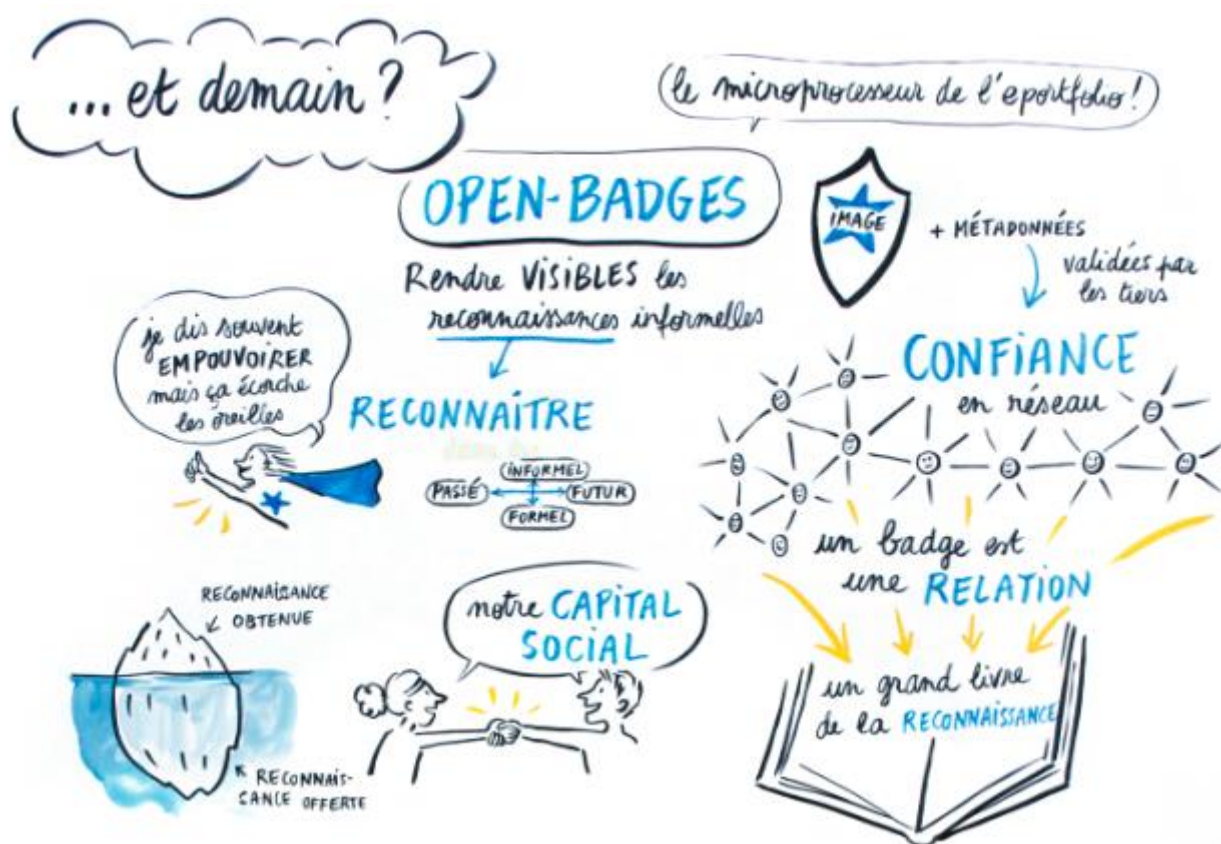 ... et demain ?
le microprocesseur de l'eportfolio !
OPEN-BADGES
IMAGE
+ MÉTADONNÉES
validées par
les tiers
Rendre VISIBLES les
reconnaissances informelles
je dis souvent
EMPOUVOIRER
mais ça écorche
les oreilles
RECONNAÎTRE
INFORMEL
PASSÉ
FUTUR
FORMEL
CONFIANCE
en réseau
un badge est
une RELATION
RECONNAISSANCE
OBTENUE
RECONNAIS-
SANCE OFFERTE
notre CAPITAL
SOCIAL
un grand livre
de la RECONNAISSANCE